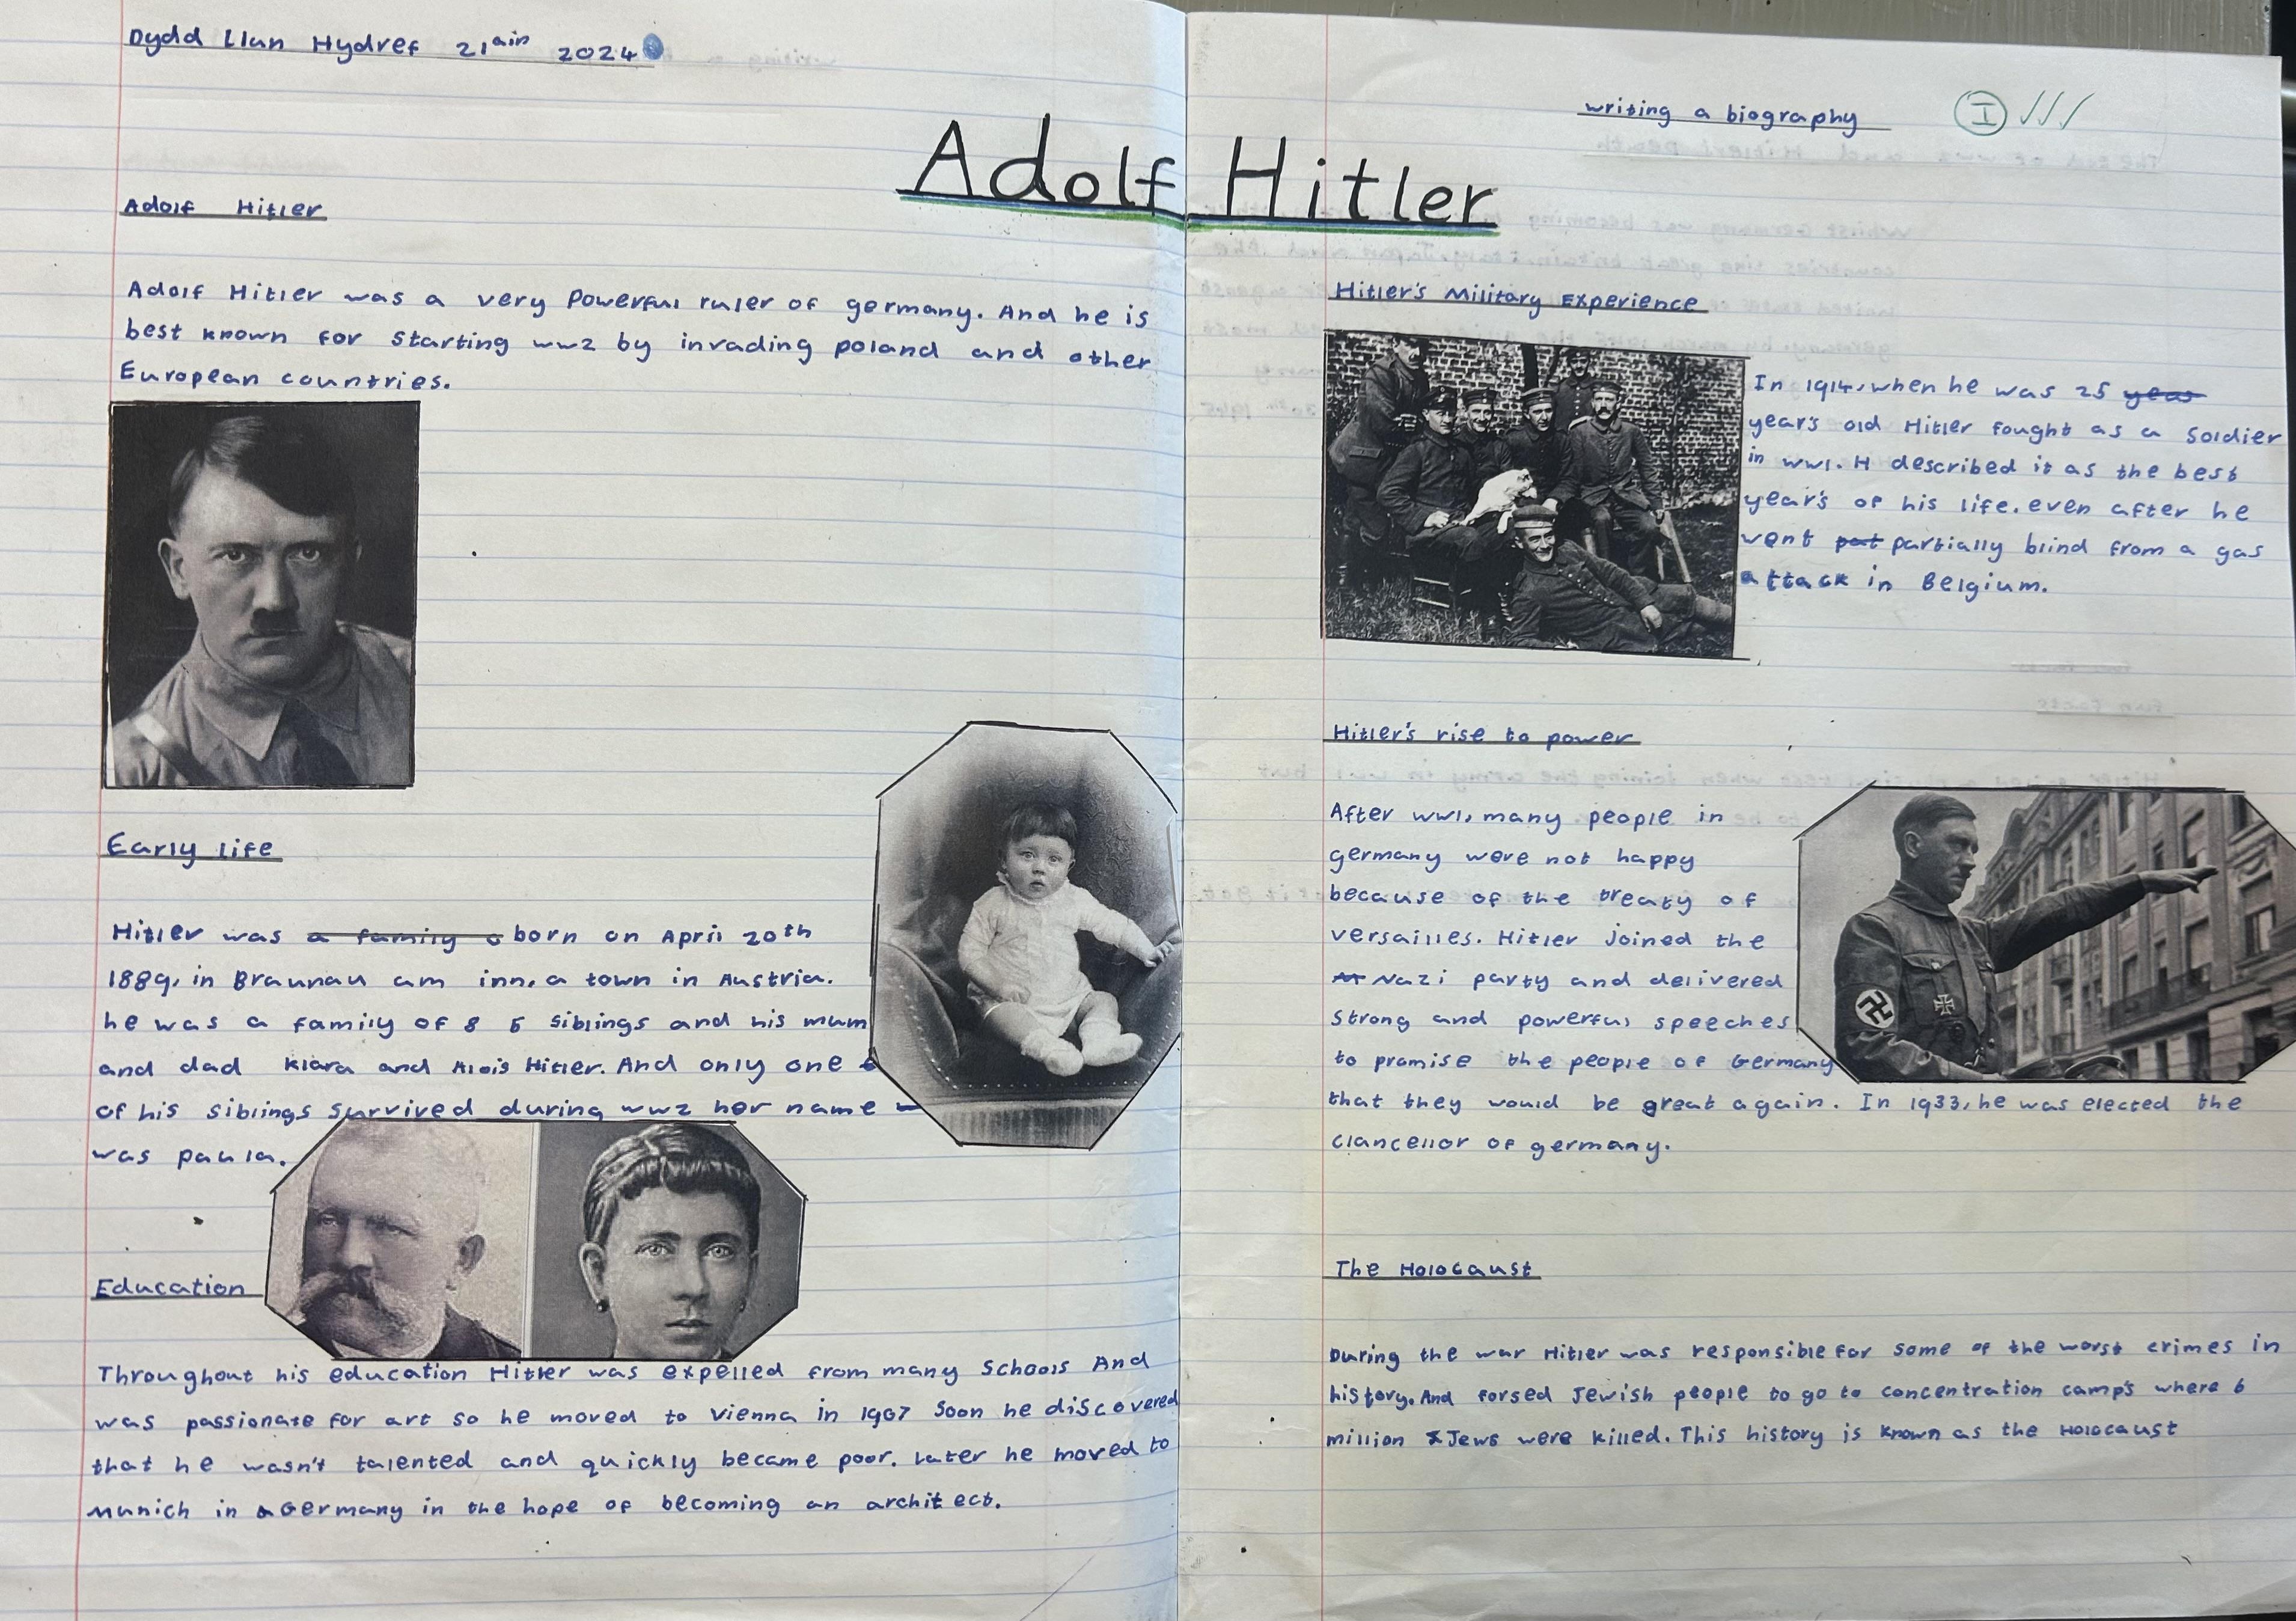 Dydd Llun Hydref 21ain 2024
writing a biography
I
Adolf Hitler
Adolf Hitler
Adolf Hitler was a very powerful ruler of germany. And he is
best known for starting ww2 by invading poland and other
European countries.
Early life
Hitler was a family o born on April 20th
1889, in Braunau am inn, a town in Austria.
he was a family of 8 5 siblings and his mum
and dad Klara and Alois Hitler. And only one
of his siblings survived during ww2 her name
was paula.
Education
Throughout his education Hitler was expelled from many schools And
was passionate for art so he moved to Vienna in 1907 Soon he discovered
that he wasn't talented and quickly became poor. Later he moved to
Munich in Germany in the hope of becoming an architect.
Hitler's Military Experience
In 1914, when he was 25 year
year's old Hitler fought as a soldier
in ww1. H described it as the best
year's of his life. even after he
went pat partially blind from a gas
attack in Belgium.
Hitler's rise to power
After ww1, many people in
germany were not happy
because of the treaty of
versailles. Hitler joined the
Nazi party and delivered
strong and powerful speeches
to promise the people of Germany
that they would be great again. In 1933, he was elected the
clancellor of germany.
The Holocaust
During the war Hitler was responsible for some of the worst crimes in
history. And forsed Jewish people to go to concentration camp's where 6
million Jews were killed. This history is known as the Holocaust